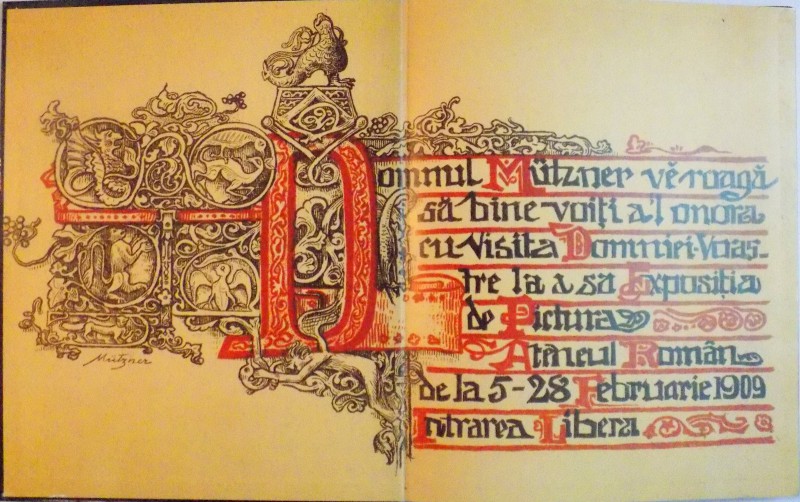 Domnul Mützner vĕ roagă
să bine voiți a'l onora
cu Visita Domniei-Voas-
tre la a sa Expoziția
de Pictura
Ateneul Român
de la 5-28 Februarie 1909
Intrarea Libera
Mützner